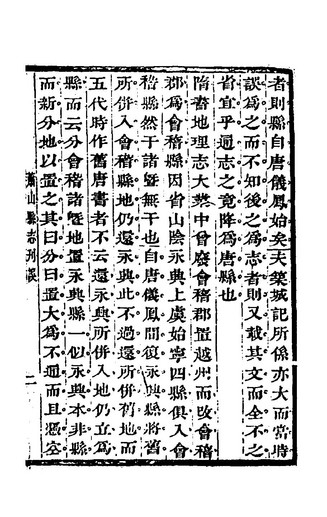 者則縣自唐儀鳳始矣夫築城記所係亦大而當時
誤為之而不知後之為志者則又載其文而全不之
省宜乎通志之竟降為唐縣也
隋書地理志大業中曾廢會稽郡置越州而改會稽
郡為會稽縣因省山陰永興上虞始寧四縣俱入會
稽縣然于諸暨無干也自唐儀鳳間復永興縣將舊
所併入會稽縣地仍還永興此不過還所併舊地而
五代時作舊唐書者不云還永興所併入地仍立為
縣而云分會稽諸暨地置永興縣一似永興本非縣
而新分地以置之其曰分曰置大為不通而且憑空
蕭山縣志刊誤
二